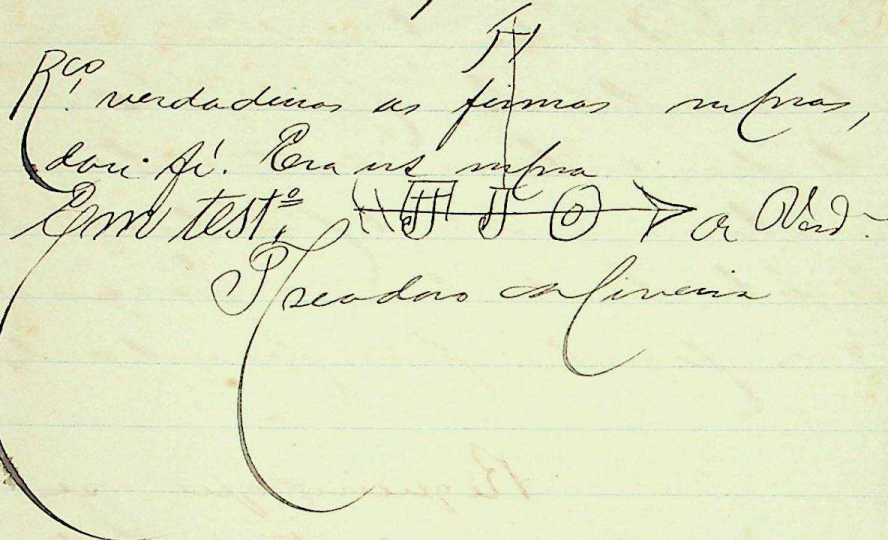 Rço. verdadeiras as firmas supras,
dou fé. Era ut supra
Em test.º da Verd.
Theodoro Oliveira